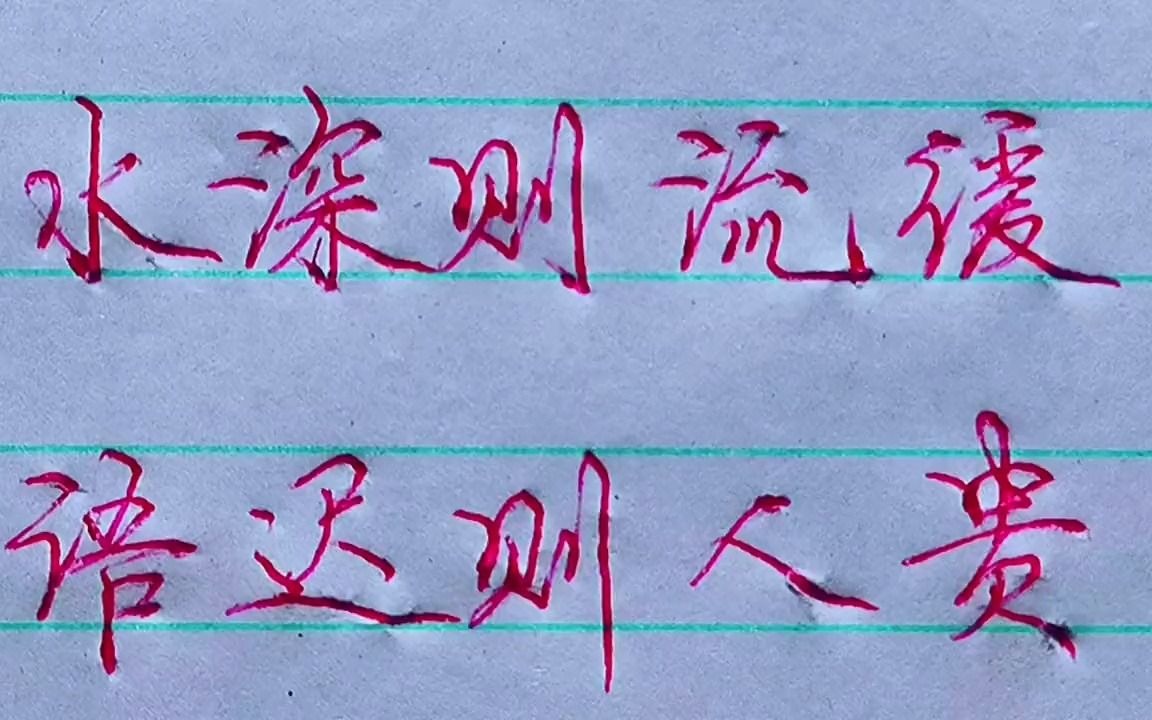 水深则流缓
语迟则人贵